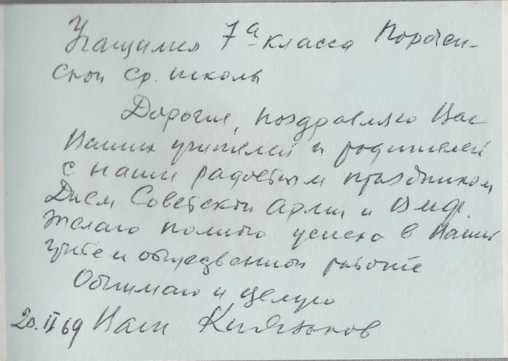 Учащимся 7а класса
ской ср. школы
Дорогие, поздравляю Вас
Ваших учителей и родителей
с наши радостным праздником
Днем Советской Армии и ВМФ.
Желаю полного успеха в Вашей
учебе и общественной работе
Обнимаю и целую
20.II 69 Ваш